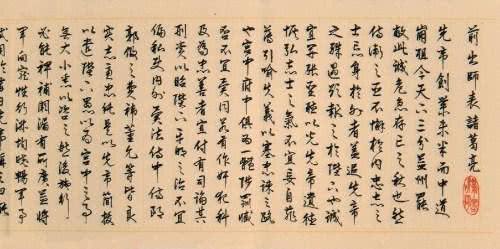 前出師表諸葛亮
先帝創業未半而中道
崩殂今天下三分益州罷
敝此誠危急存亡之秋也然
侍衛之臣不懈於內忠志之
士忘身於外者蓋追先帝
之殊遇欲報之於陛下也誠
宜開張聖聽以光先帝遺德
恢弘志士之氣不宜妄自菲
薄引喻失義以塞忠諫之路
也宮中府中俱為一體陟罰臧
否不宜異同若有作奸犯科
及為忠善者宜付有司論其
刑賞以昭陛下平明之治不宜
偏私使內外異法侍中侍郎
郭攸之費禕董允等皆良
實志慮忠純是以先帝簡拔
以遺陛下愚以為宮中之事
無大小悉以咨之然後施行
必能裨補闕漏有所廣益將
軍向寵性行淑均曉暢軍事
試用於昔日先帝